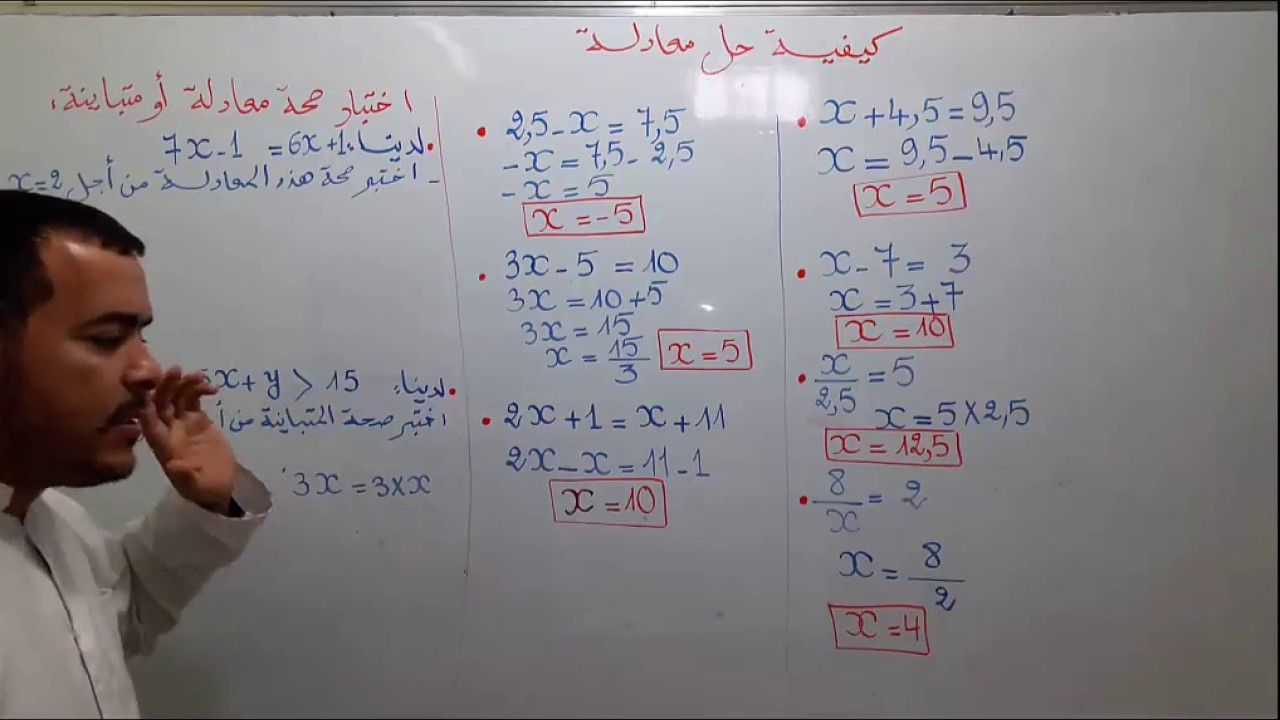 كيفية حل معادلة
• x + 4,5 = 9,5
x = 9,5 - 4,5
x = 5
• x - 7 = 3
x = 3 + 7
x = 10
• x/2,5 = 5
x = 5 × 2,5
x = 12,5
• 8/x = 2
x = 8/2
x = 4
• 2,5 - x = 7,5
- x = 7,5 - 2,5
- x = 5
x = -5
• 3x - 5 = 10
3x = 10 + 5
3x = 15
x = 15/3
x = 5
• 2x + 1 = x + 11
2x - x = 11 - 1
x = 10
اختبار صحة معادلة أو متباينة:
• لدينا: 7x - 1 = 6x + 1
- اختبر صحة هذه المعادلة من أجل x = 2
• لدينا: x + y > 15
اختبر صحة المتباينة من
3x = 3 × x